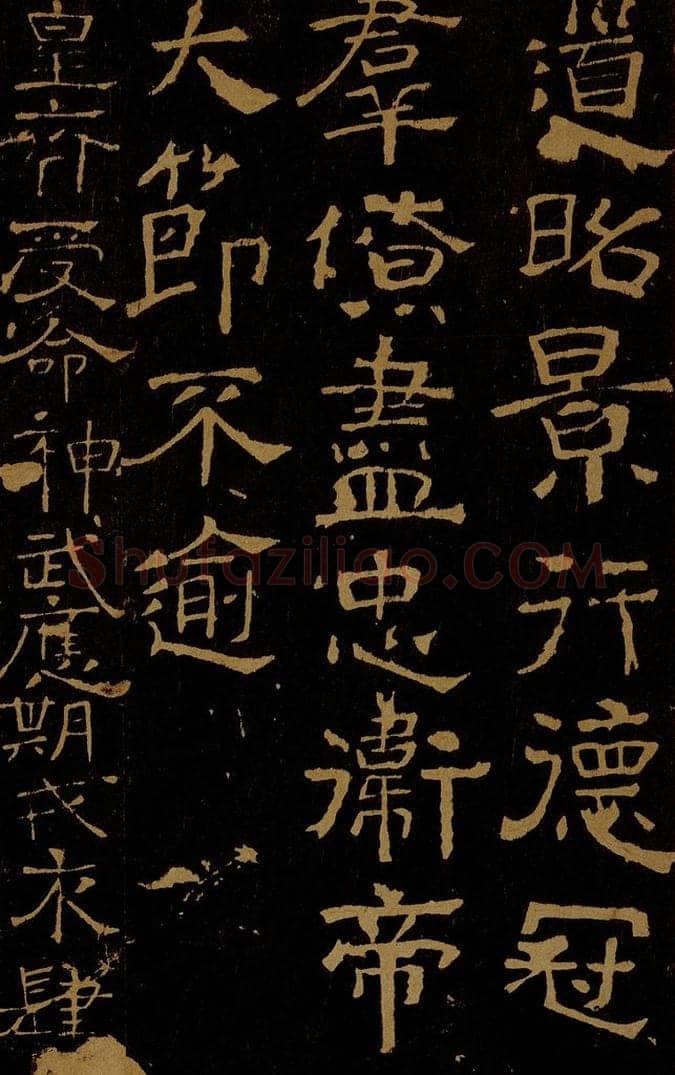 道昭景行德冠
羣僚盡忠衛帝
大節不逾
皇齊受命神武應期戎衣肆
Shufaziliao.COM